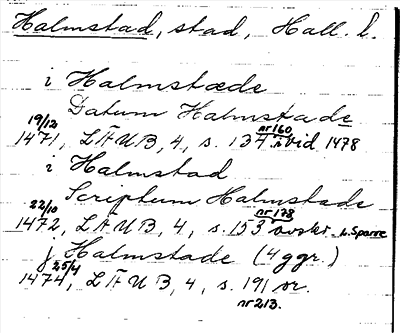 Halmstad, stad, Hall. l.
i Halmstæde
Datum Halmstade
19/12 nr 160
1471, LÄUB, 4, s. 137. i vid 1478
i Halmstad
Scriptum Halmstade
22/10 nr 178
1472, LÄUB, 4, s. 153 avskr. L. Sparre
j Halmstade (4 ggr.)
25/4
1474, LÄUB, 4, s. 191 or.
nr 213.